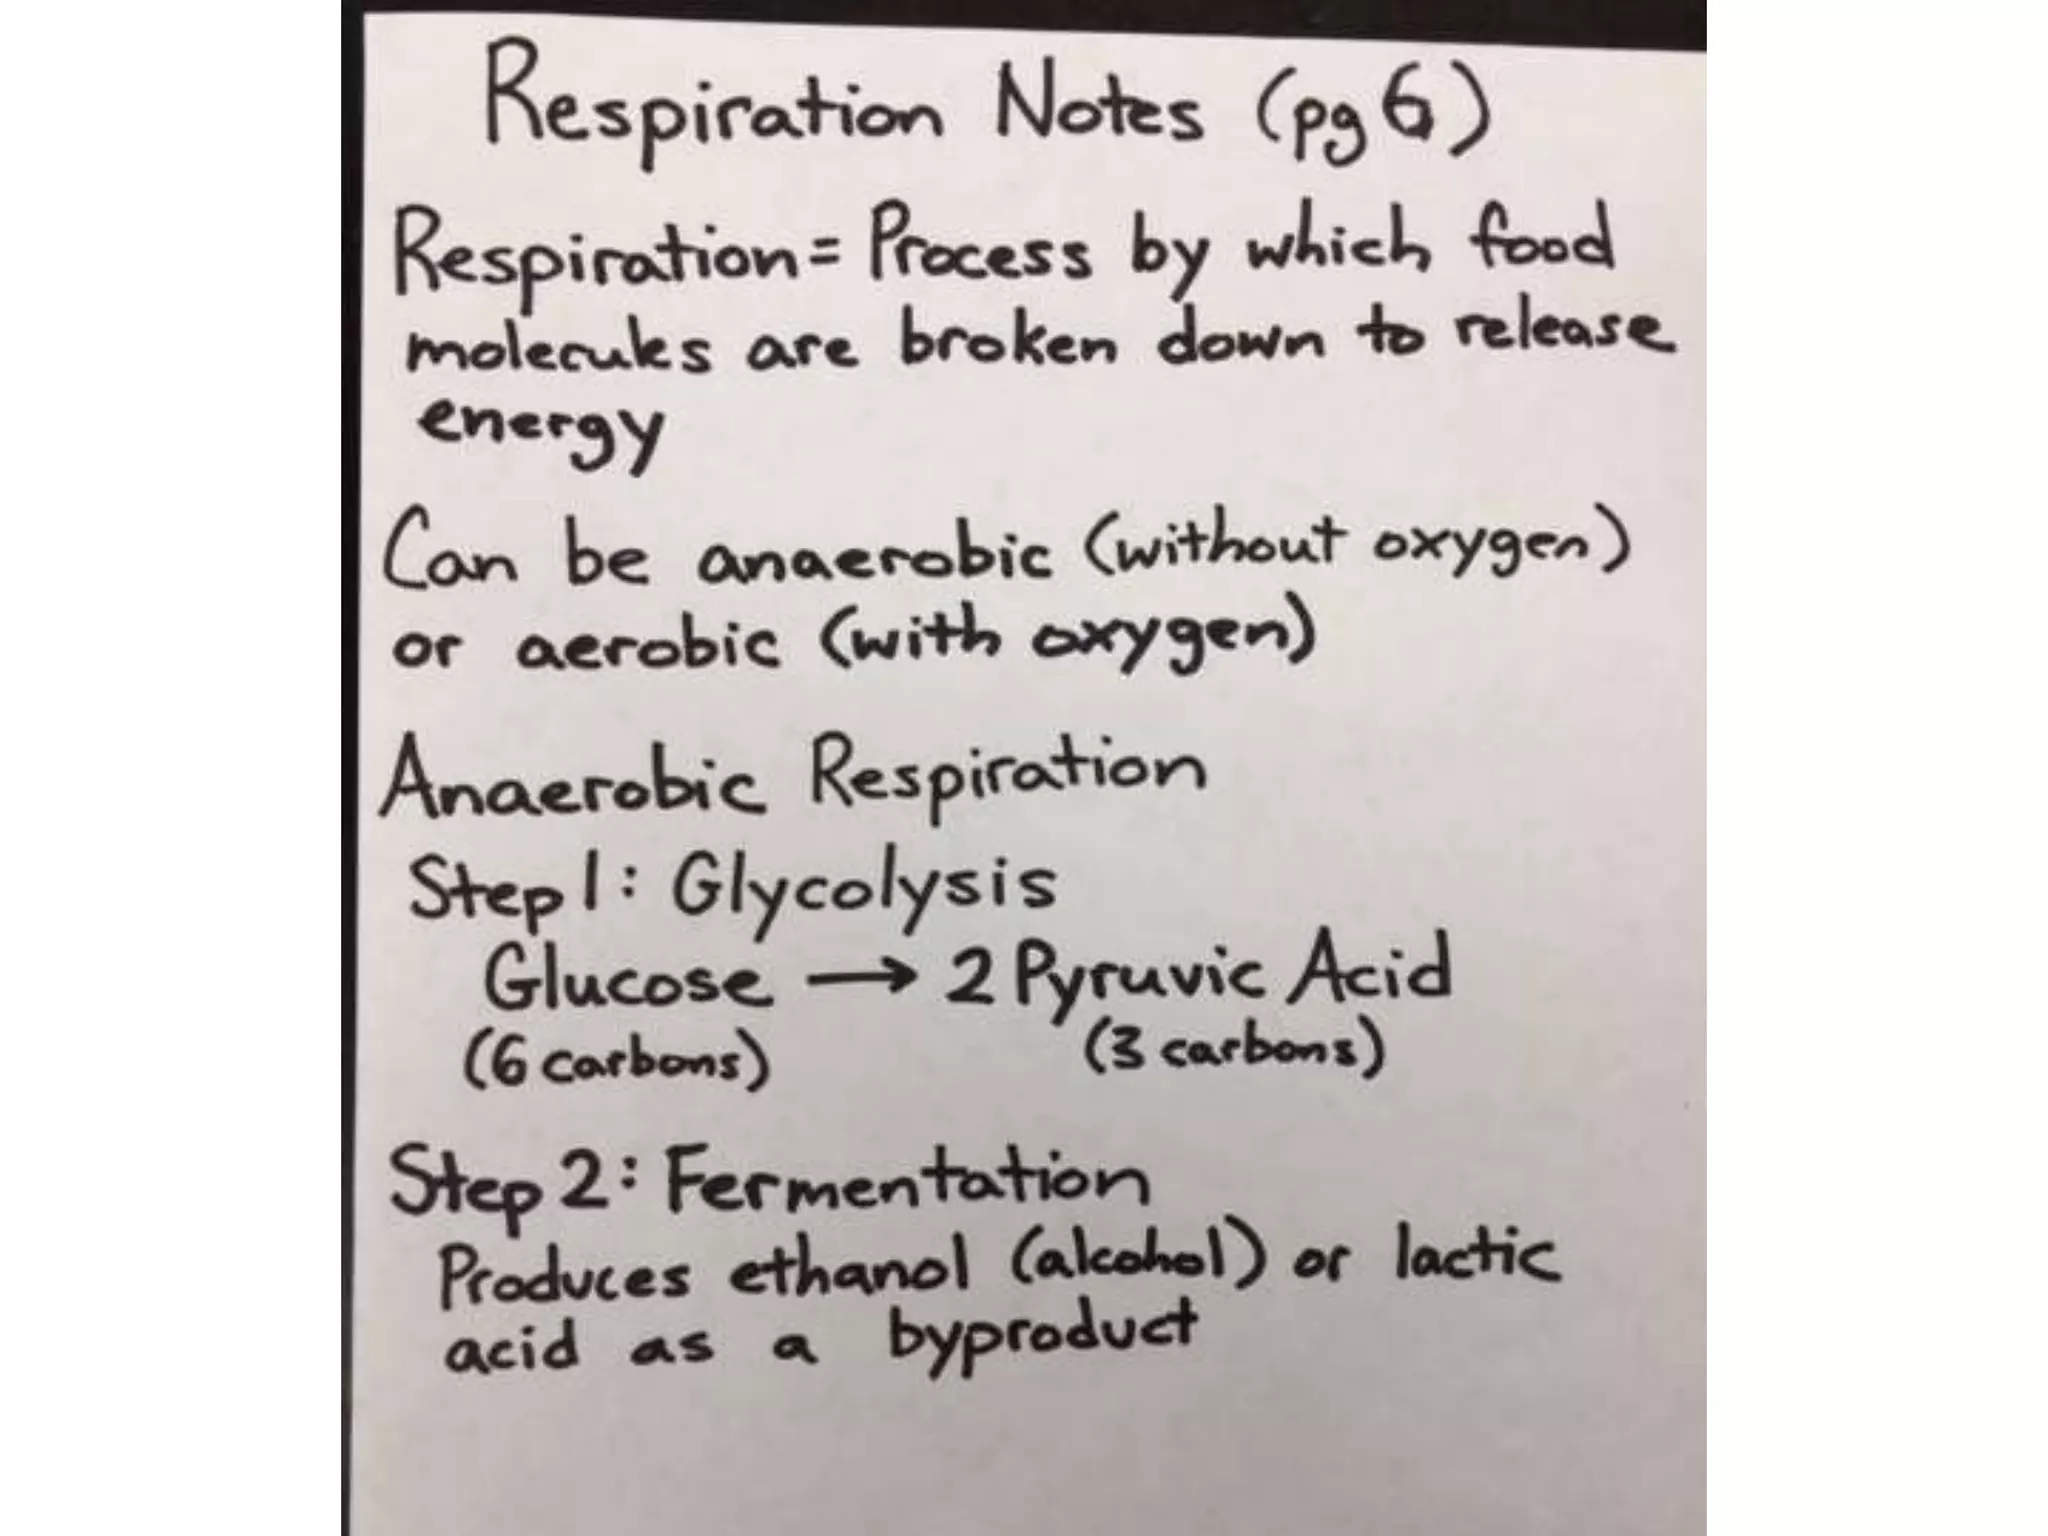 Respiration Notes (pg 6)
Respiration = Process by which food
molecules are broken down to release
energy
Can be anaerobic (without oxygen)
or aerobic (with oxygen)
Anaerobic Respiration
Step 1: Glycolysis
Glucose → 2 Pyruvic Acid
(6 carbons) (3 carbons)
Step 2: Fermentation
Produces ethanol (alcohol) or lactic
acid as a byproduct